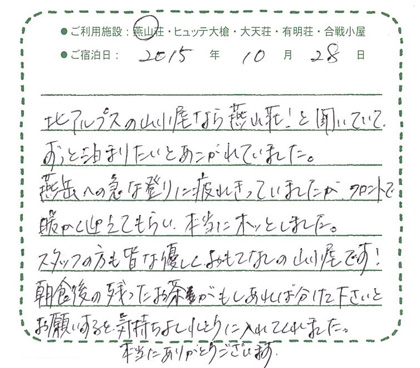 ●ご利用施設：燕山荘・ヒュッテ大槍・大天荘・有明荘・合戦小屋
●ご宿泊日：2015年10月28日
北アルプスの山小屋なら燕山荘！と聞いていて、
ずっと泊まりたいとあこがれていました。
燕岳への急な登りに疲れきっていましたが フロントで
暖かく迎えてもらい、本当にホッとしました。
スタッフの方も皆な優しくおもてなしの山小屋です！
朝食後の残ったお茶がもしあれば分けて下さいと
お願いすると、気持ちよく水とうに入れてくれました。
本当にありがとうございます。